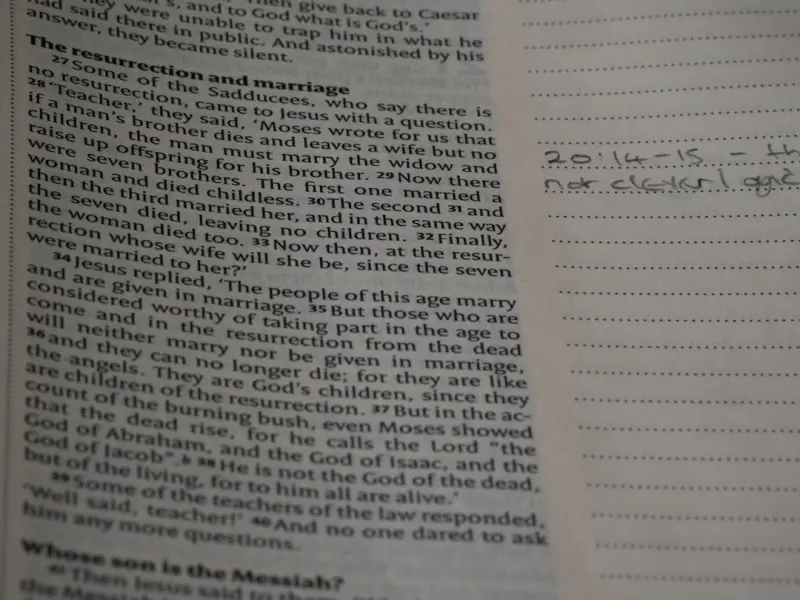 then give back to Caesar
and to God what is God's.'
they were unable to trap him in what he
had said there in public. And astonished by his
answer, they became silent.
The resurrection and marriage
27 Some of the Sadducees, who say there is
no resurrection, came to Jesus with a question.
28 'Teacher,' they said, 'Moses wrote for us that
if a man's brother dies and leaves a wife but no
children, the man must marry the widow and
raise up offspring for his brother. 29 Now there
were seven brothers. The first one married a
woman and died childless. 30 The second 31 and
then the third married her, and in the same way
the seven died, leaving no children. 32 Finally,
the woman died too. 33 Now then, at the resur-
rection whose wife will she be, since the seven
were married to her?'
34 Jesus replied, 'The people of this age marry
and are given in marriage. 35 But those who are
considered worthy of taking part in the age to
come and in the resurrection from the dead
will neither marry nor be given in marriage,
36 and they can no longer die; for they are like
the angels. They are God's children, since they
are children of the resurrection. 37 But in the ac-
count of the burning bush, even Moses showed
that the dead rise, for he calls the Lord "the
God of Abraham, and the God of Isaac, and the
God of Jacob".b 38 He is not the God of the dead,
but of the living, for to him all are alive.'
39 Some of the teachers of the law responded,
'Well said, teacher!' 40 And no one dared to ask
him any more questions.
Whose son is the Messiah?
41 Then Jesus said to them,
20:14-15 - th
not clever logic